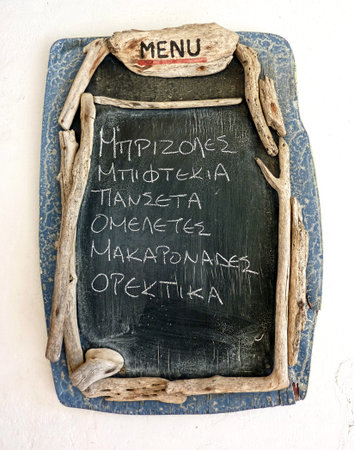 MENU
ΜΠΡΙΖΟΛΕΣ
ΜΠΙΦΤΕΚΙΑ
ΠΑΝΣΕΤΑ
ΟΜΕΛΕΤΕΣ
ΜΑΚΑΡΟΝΑΔΕΣ
ΟΡΕΚΤΙΚΑ